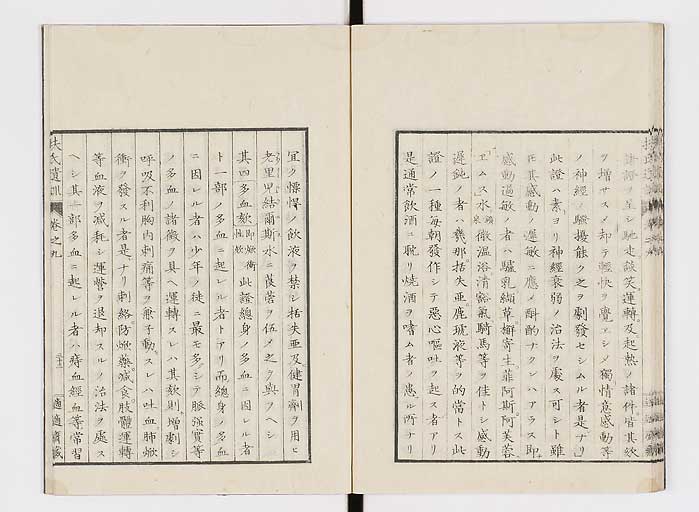 諸證ヲ呈シ馳走談笑運轉及起熱ノ諸件皆其欬
ヲ増サスメ却テ輕快ヲ覺エシメ獨情意感動等
ノ神經ノ騷擾能ク之ヲ劇發セシムル者是ナリ
此證ハ素ヨリ神經衰弱ノ治法ヲ處ス可シト雖
モ其感動ノ遲敏ニ應メ斟酌ナクンハアラス即
感動過敏ノ者ハ驢乳纈草槲寄生菲阿斯阿芙蓉
エムス水 礦泉 微温浴清豁氣騎馬等ヲ佳トシ感動
遲鈍ノ者ハ幾那括失亜鹿琥液等ヲ的當トス此
證ノ一種毎朝發作シテ惡心嘔吐ヲ起ス者アリ
是通常飲酒ニ耽リ燒酒ヲ嗜ム者ノ患ル所ナリ
宜ク慓悍ノ飲液ヲ禁シ括失亜及健胃劑ヲ用ヒ
老里兒結爾斯水ニ莨菪ヲ伍メ之ヲ與フヘシ
其四多血欬 即焮衝性欬 此證總身ノ多血ニ因レル者
ト一部ノ多血ニ起レル者トアリ而總身ノ多血
ニ因レル者ハ少年ノ徒ニ最モ多シテ脈強實等
ノ多血ノ諸徴ヲ具ヘ運轉スレハ其欬則増劇シ
呼吸不利胸内刺痛等ヲ兼子動スレハ吐血肺焮
衝ヲ發スル者是ナリ刺絡防焮藥減食肢體運轉
等血液ヲ減耗シ運營ヲ退却スルノ治法ヲ處ス
ヘシ其一部多血ニ起レル者ハ痔血經血等常習
扶氏遺訓 卷之九 適適齋藏